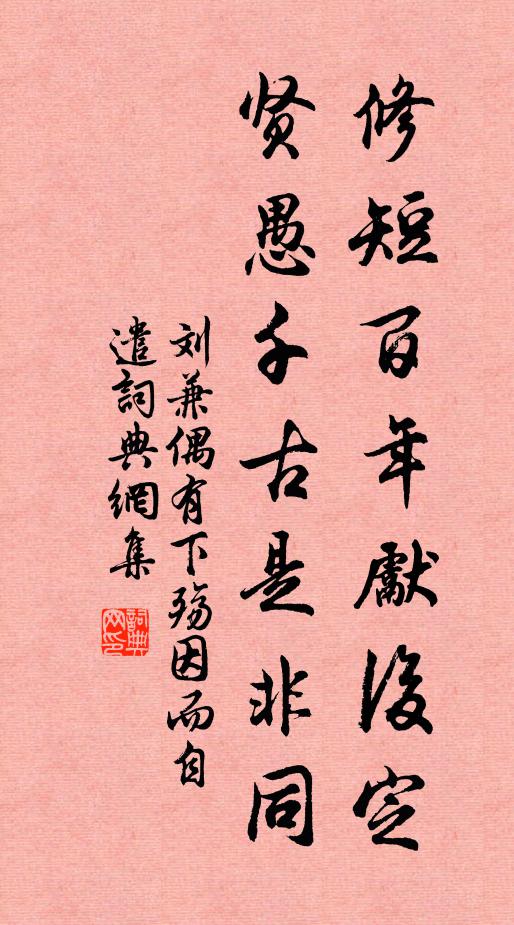 修短百年獻後定
贤愚千古是非同
刘兼偶有下殇因而自
遣詞典網集
詞典
网印